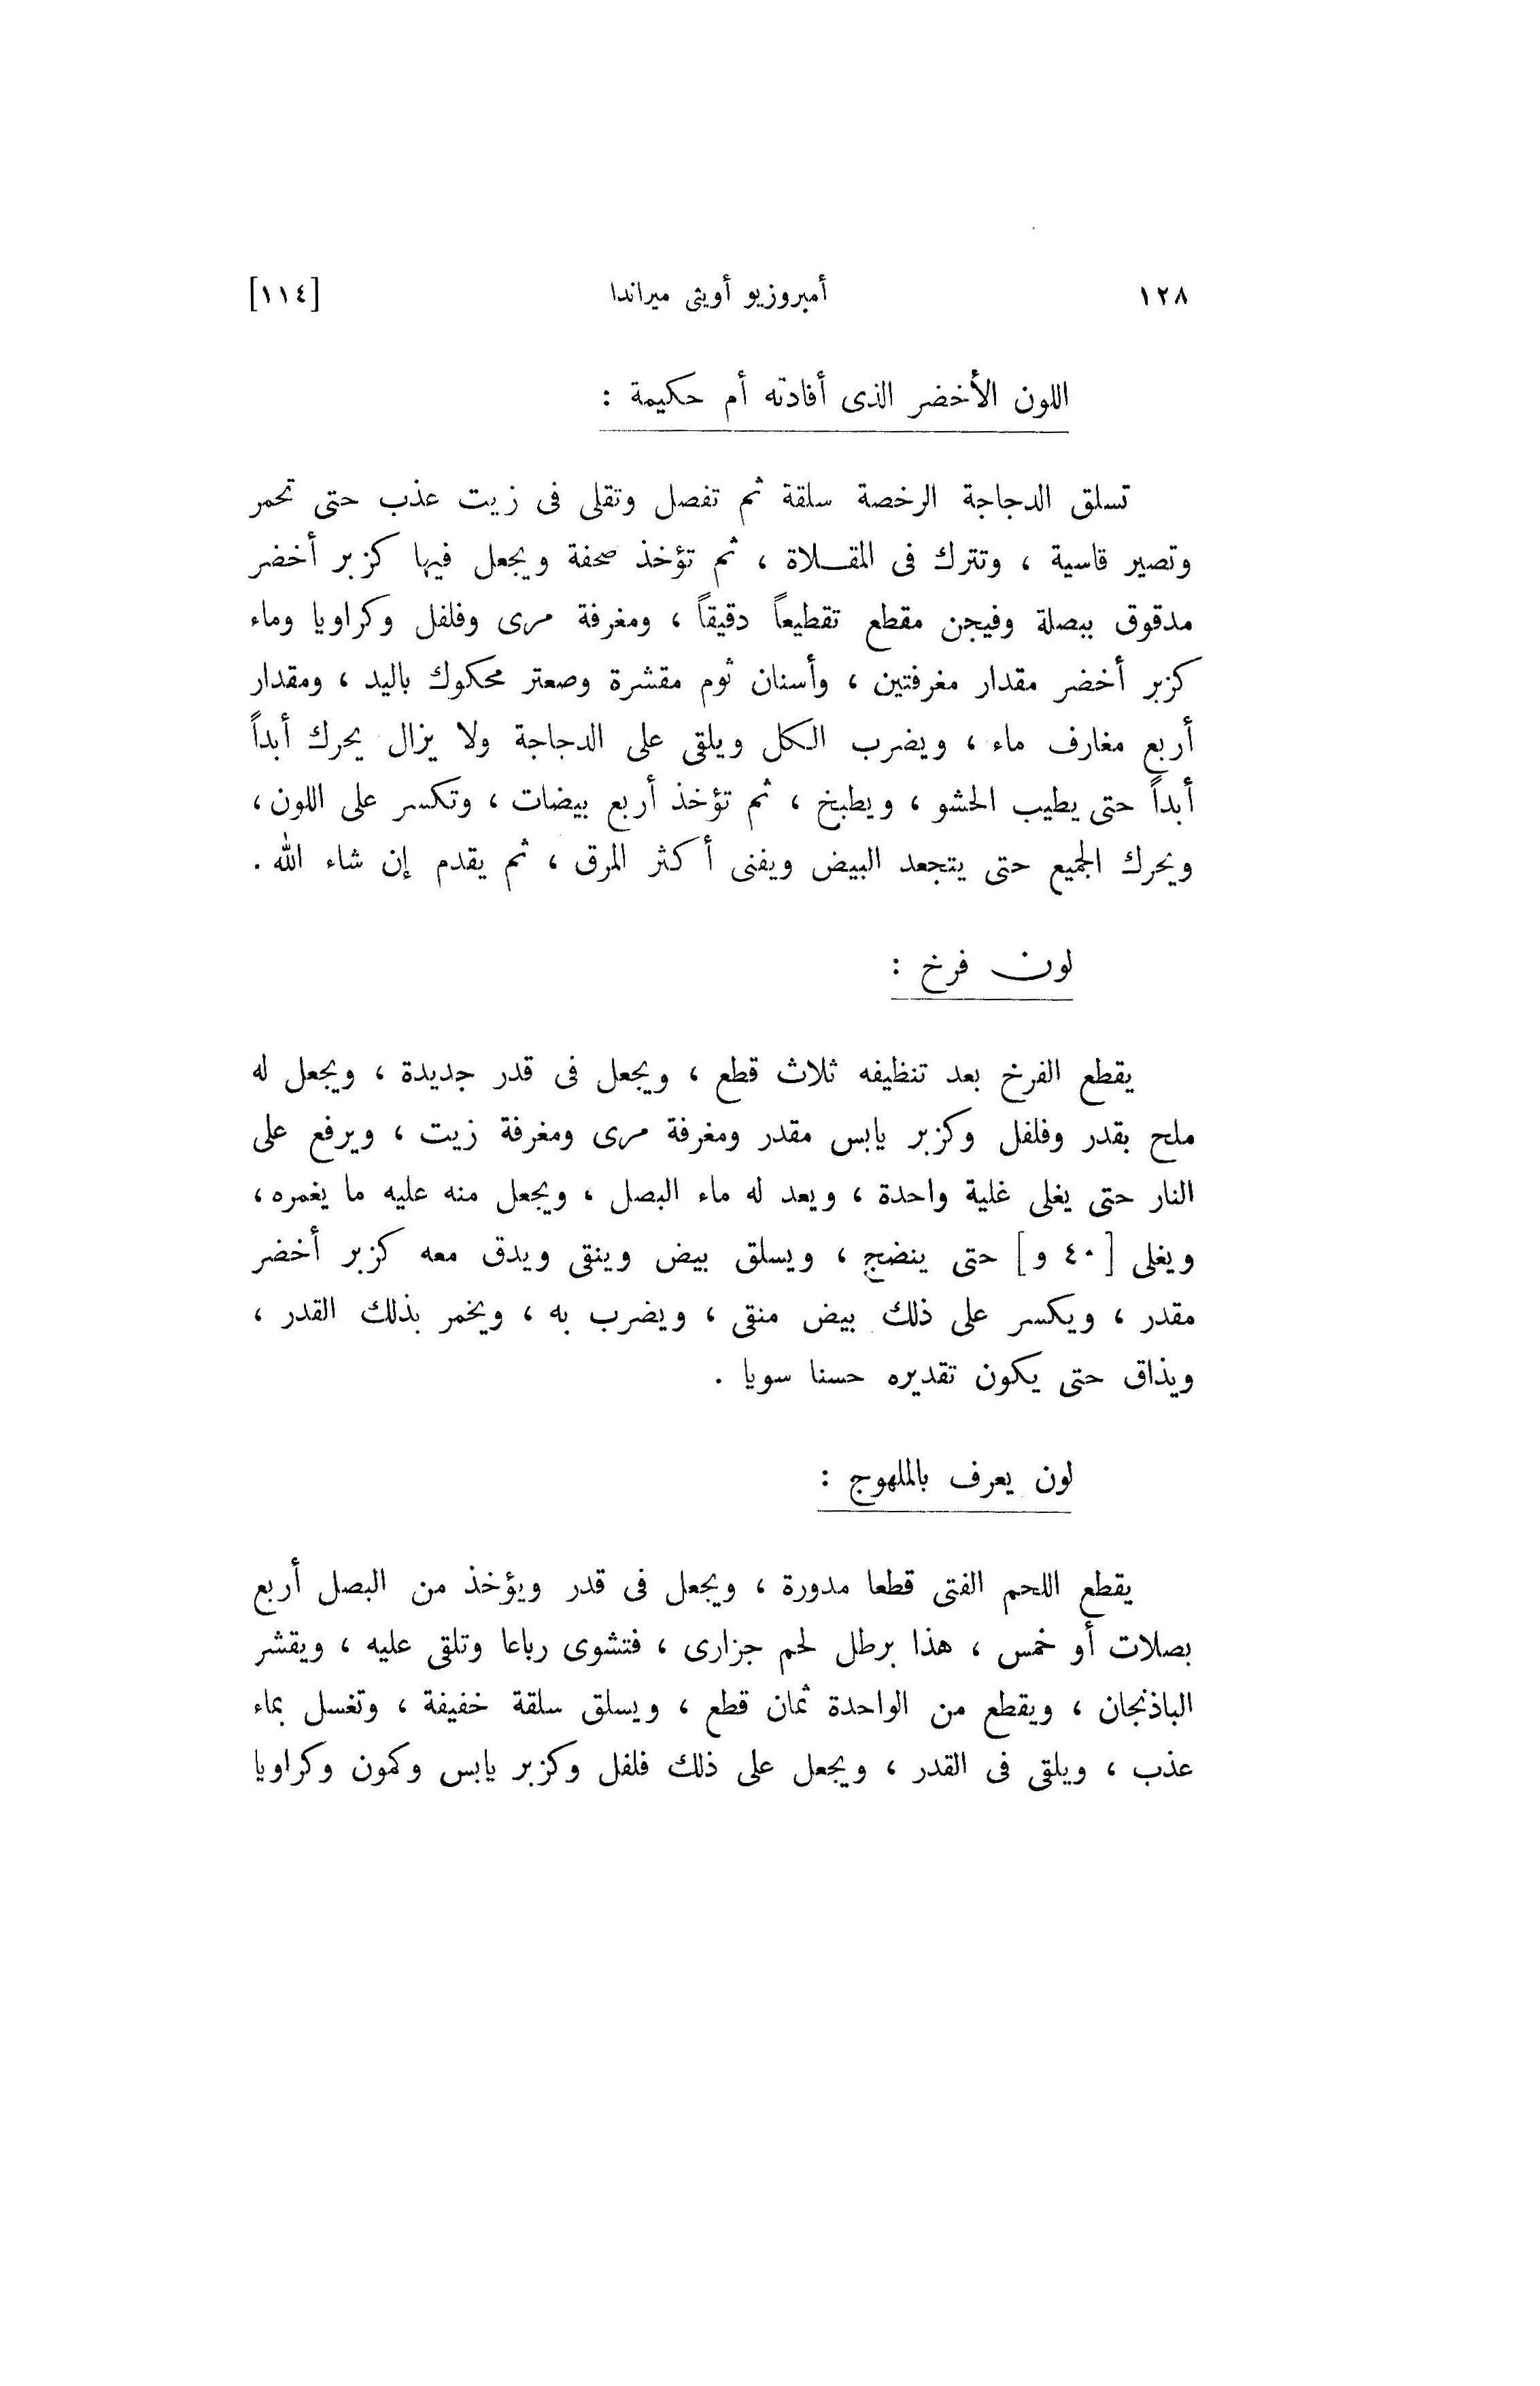 ١٢٨ أمبروزيو أويثى ميراندا [١١٤]
اللون الأخضر الذى أفادته أم حكيمة :
تسلق الدجاجة الرخصة سلقة ثم تفصل وتقلى فى زيت عذب حتى تحمر
وتصير قاسية ، وتترك فى المقلاة ، ثم تؤخذ صحفة ويجعل فيها كزبر أخضر
مدقوق ببصلة وفيجن مقطع تقطيعاً دقيقاً ، ومغرفة مرى وفلفل وكراويا وماء
كزبر أخضر مقدار مغرفتين ، وأسنان ثوم مقشرة وصعتر محكوك باليد ، ومقدار
أربع مغارف ماء ، ويضرب الكل ويلقى على الدجاجة ولا يزال يحرك أبداً
أبداً حتى يطيب الحشو ، ويطبخ ، ثم تؤخذ أربع بيضات ، وتكسر على اللون ،
ويحرك الجميع حتى يتجعد البيض ويفنى أكثر المرق ، ثم يقدم إن شاء الله .
لون فرخ :
يقطع الفرخ بعد تنظيفه ثلاث قطع ، ويجعل فى قدر جديدة ، ويجعل له
ملح بقدر وفلفل وكزبر يابس مقدر ومغرفة مرى ومغرفة زيت ، ويرفع على
النار حتى يغلى غلية واحدة ، ويعد له ماء البصل ، ويجعل منه عليه ما يغمره ،
ويغلى [٤٠ و] حتى ينضج ، ويسلق بيض وينقى ويدق معه كزبر أخضر
مقدر ، ويكسر على ذلك بيض منقى ، ويضرب به ، ويخمر بذلك القدر ،
ويذاق حتى يكون تقديره حسنا سويا .
لون يعرف بالملهوج :
يقطع اللحم الفتى قطعا مدورة ، ويجعل فى قدر ويؤخذ من البصل أربع
بصلات أو خمس ، هذا برطل لحم جزارى ، فتشوى رباعا وتلقى عليه ، ويقشر
الباذنجان ، ويقطع من الواحدة ثمان قطع ، ويسلق سلقة خفيفة ، وتغسل بماء
عذب ، ويلقى فى القدر ، ويجعل على ذلك فلفل وكزبر يابس وكمون وكراويا